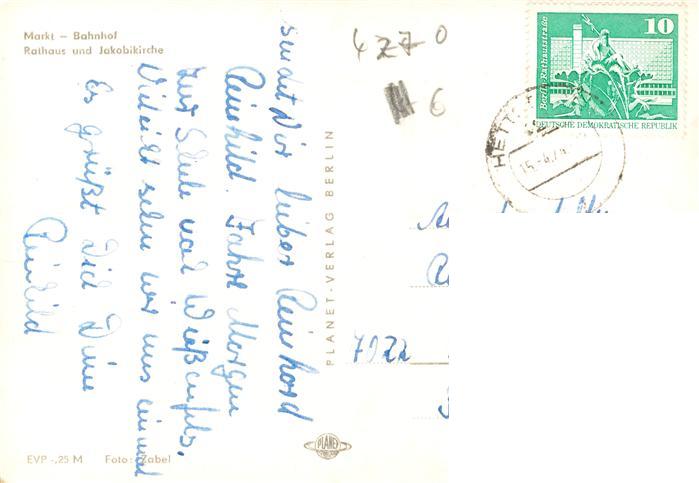 Markt – Bahnhof
Rathaus und Jakobikirche
sendet Dir lieber Reinhard
Reinhild. Fahre Morgen
zur Schule nach Weißenfels.
Vieleicht sehn wir uns einmal
Es grüßt Dich Deine
Reinhild
PLANET-VERLAG BERLIN
EVP -,25 M Foto: Zabel
PLANET
4270
6
10
Berlin, Rathausstraße
DEUTSCHE DEMOKRATISCHE REPUBLIK
HETT
7022